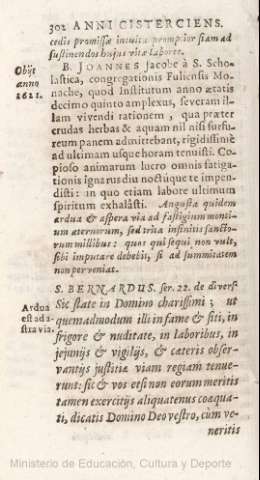 302 ANNI CISTERCIENS.
cedis promissæ intuitu promptior fiam ad
sustinendos hujus vitæ labores.
Obijt
anno
1621.
B. JOANNES Jacobe à S. Scho-
lastica, congregationis Fuliensis Mo-
nache, quod Institutum anno ætatis
decimo quinto amplexus, severam il-
lam vivendi rationem, qua præter
crudas herbas & aquam nil nisi furfu-
reum panem admittebant, rigidissimè
ad ultimam usque horam tenuisti. Co-
pioso animarum lucro omnis fatiga-
tionis ignarus diu noctuque te impen-
disti: in quo etiam labore ultimum
spiritum exhalâsti. Angusta quidem
ardua & aspera via ad fastigium monti-
um æternorum, sed trita infinitis sancto-
rum millibus: quos qui sequi non vult,
sibi imputare debebit, si ad summitatem
non perveniat.
S. BERNARDUS. ser. 22. de divers.
Ardua
est ad a-
stra via.
Sic state in Domino charissimi; ut
quemadmodum illi in fame & siti, in
frigore & nuditate, in laboribus, in
jejunijs & vigilijs, & cæteris obser-
vantijs justitiæ viam regiam tenue-
runt: sic & vos etsi non eorum meritis
tamen exercitijs aliquatenus coæqua-
ti, dicatis Domino Deo vestro, cùm ve-
neritis
Ministerio de Educación, Cultura y Deporte